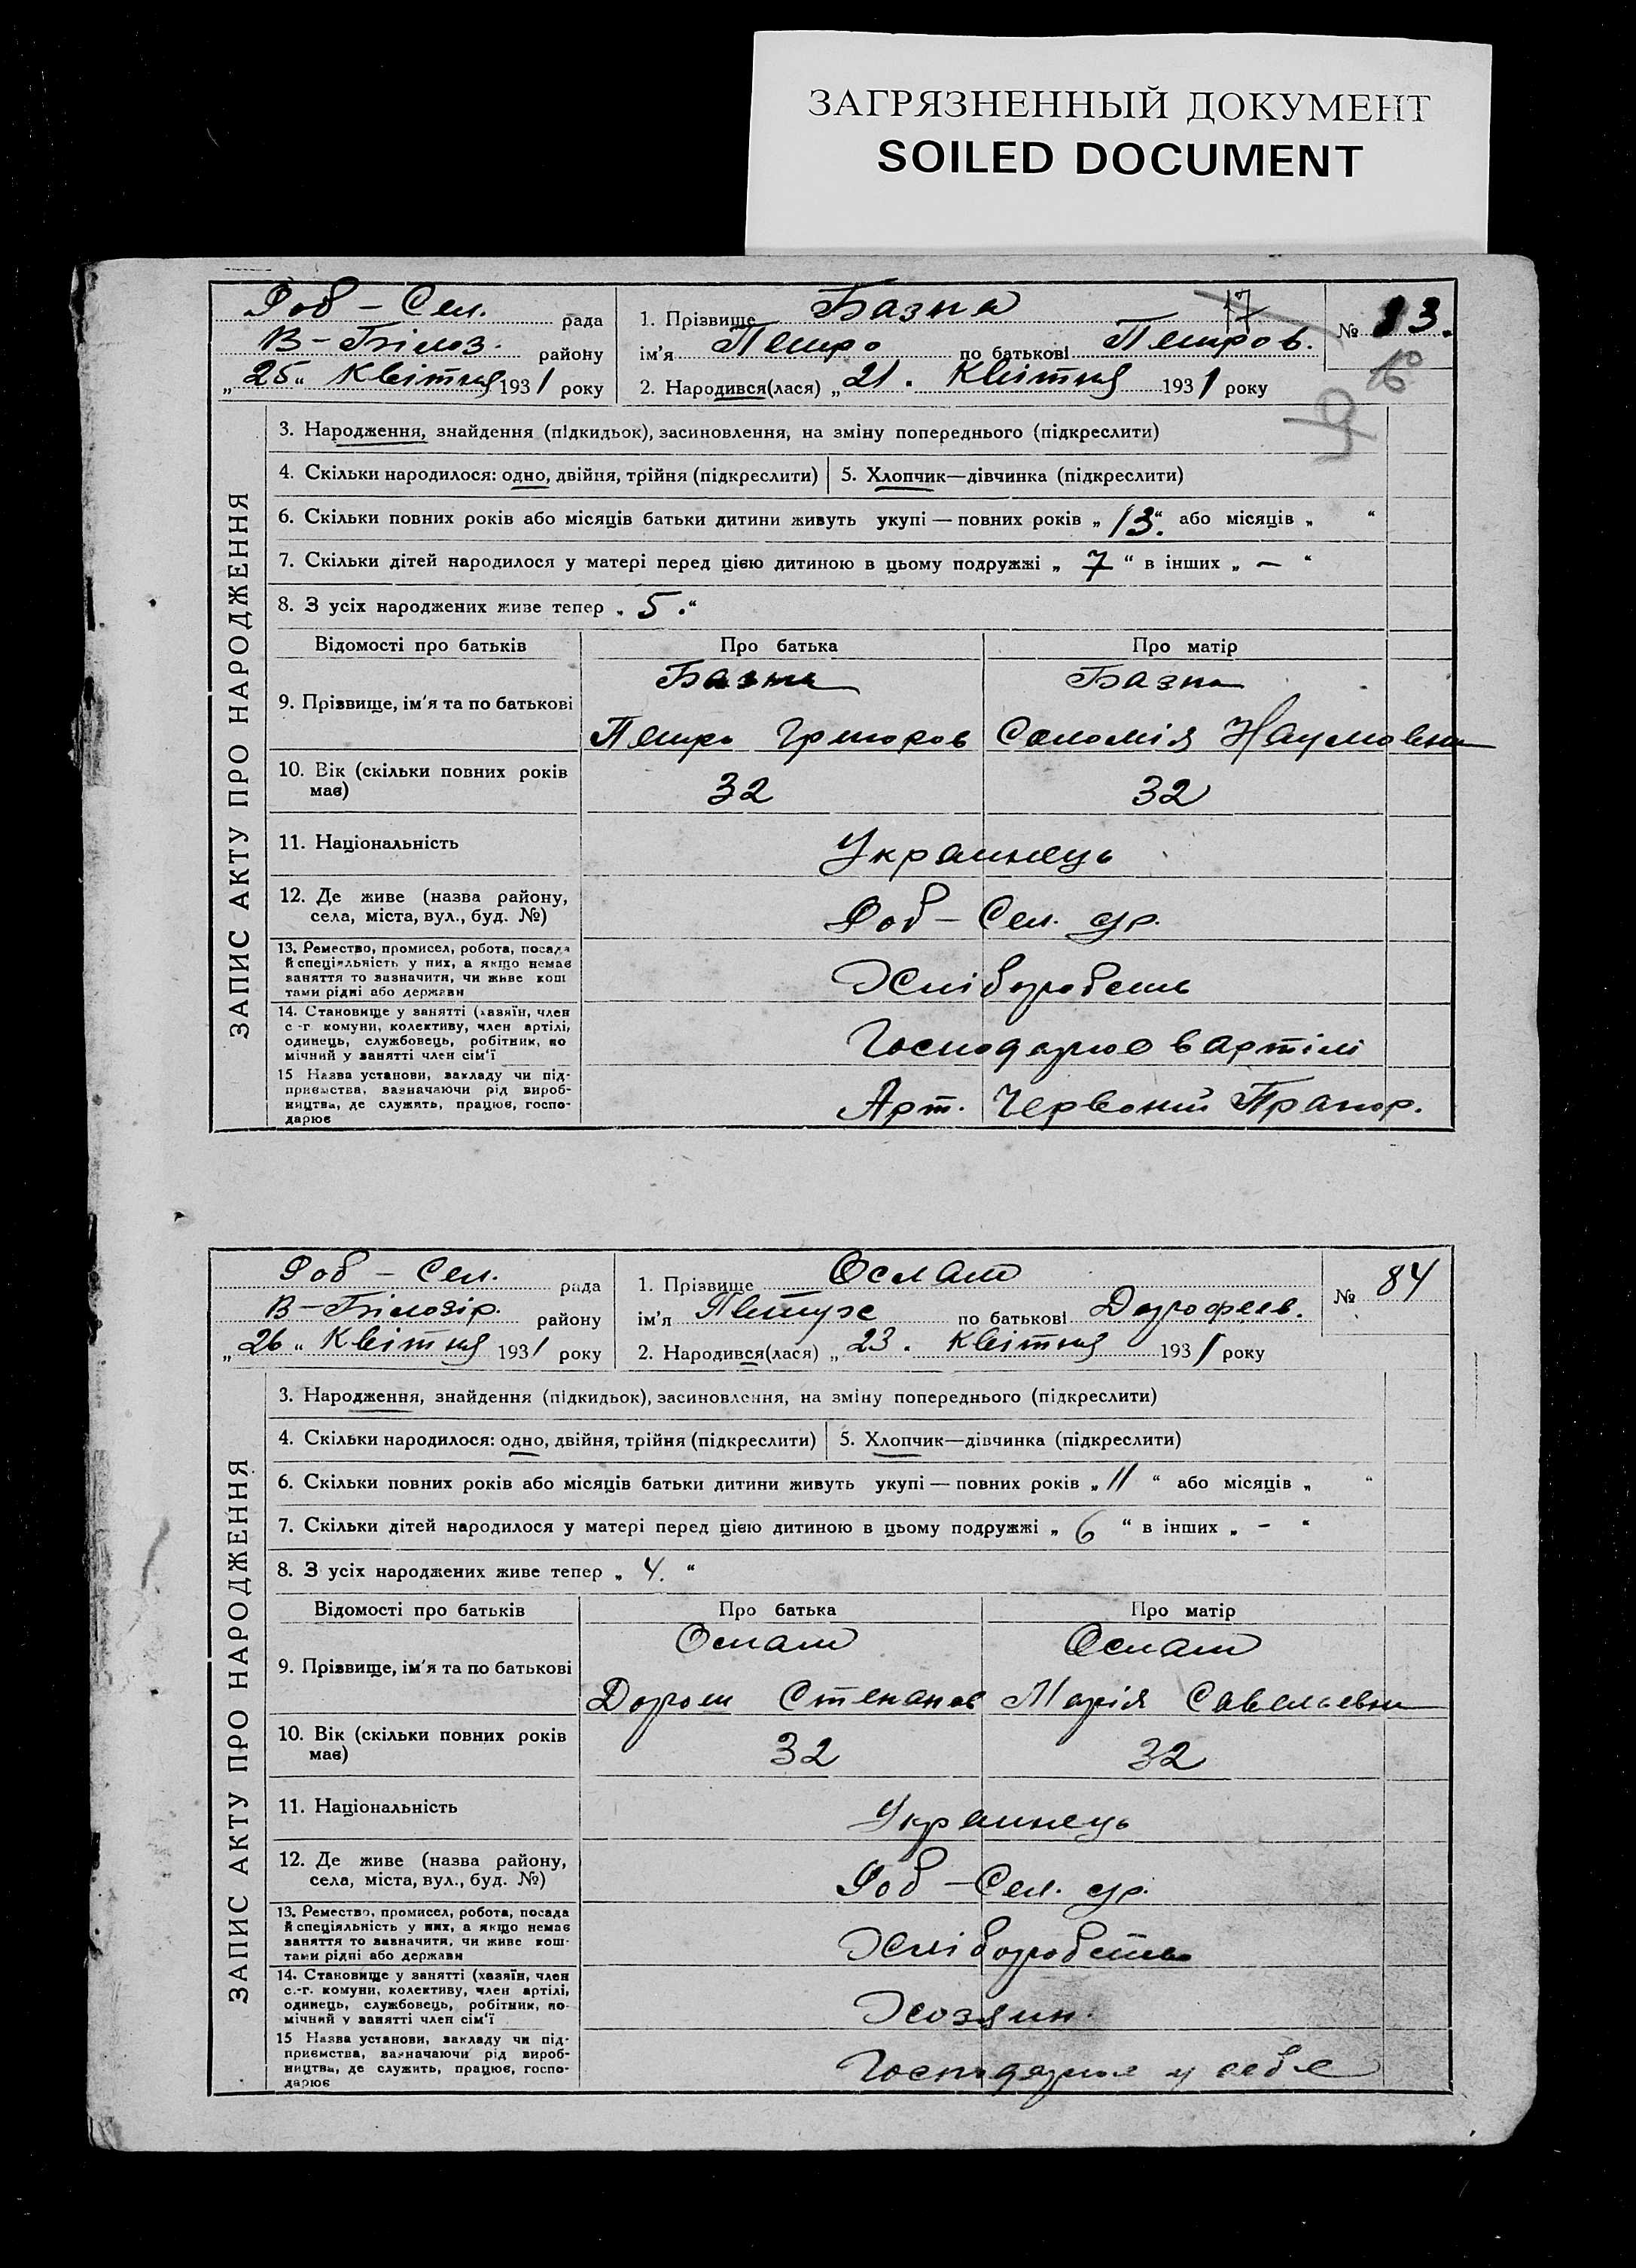 ЗАГРЯЗНЕННЫЙ ДОКУМЕНТ
SOILED DOCUMENT
Роб – Сел. рада
В – Білоз. району
„ 25 “ Квітня 1931 року
1. Прізвище Базна
17
ім'я Петро по батькові Петров.
2. Народився(лася) „ 21 . Квітня 1931 року
№ 83.
ЗАПИС АКТУ ПРО НАРОДЖЕННЯ
3. Народження, знайдення (підкидьок), засиновлення, на зміну попереднього (підкреслити)
4. Скільки народилося: одно, двійня, трійня (підкреслити) 5. Хлопчик—дівчинка (підкреслити)
6. Скільки повних років або місяців батьки дитини живуть укупі — повних років „ 13 “. або місяців „ “
7. Скільки дітей народилося у матері перед цією дитиною в цьому подружжі „ 7 “ в інших „ – “
8. З усіх народжених живе тепер „ 5 . “
Відомості про батьків Про батька Про матір
9. Прізвище, ім'я та по батькові
Базна Базна
Петро Григоров Саломія Наумовна
10. Вік (скільки повних років має)
32 32
11. Національність
Украинець
12. Де живе (назва району,
села, міста, вул., буд. №)
Роб – Сел. ср.
13. Ремество, промисел, робота, посада
й спеціяльність у них, а якщо немає
заняття то зазначити, чи живе кош
тами рідні або держави
Хліборобств
14. Становище у занятті (хазяїн, член
с -г комуни, колективу, член артілі,
одинець, службовець, робітник, по
мічний у занятті член сім'ї
Господарює в артілі
15 Назва установи, закладу чи під-
приємства, зазначаючи рід вироб-
ництва, де служить, працює, госпо-
дарює
Арт. Червоний Прапор.
Роб – Сел. рада
В – Білозір. району
„ 26 “ Квітня 1931 року
1. Прізвище Ослат
ім'я Петух по батькові Дорофеев.
2. Народився(лася) „ 23 . Квітня 1931 року
№ 84
ЗАПИС АКТУ ПРО НАРОДЖЕННЯ
3. Народження, знайдення (підкидьок), засиновлення, на зміну попереднього (підкреслити)
4. Скільки народилося: одно, двійня, трійня (підкреслити) 5. Хлопчик—дівчинка (підкреслити)
6. Скільки повних років або місяців батьки дитини живуть укупі — повних років „ 11 “ або місяців „ “
7. Скільки дітей народилося у матері перед цією дитиною в цьому подружжі „ 6 “ в інших „ – “
8. З усіх народжених живе тепер „ 4. “
Відомості про батьків Про батька Про матір
9. Прізвище, ім'я та по батькові
Ослат Ослат
Дорош Степанов Марія Савельевна
10. Вік (скільки повних років має)
32 32
11. Національність
Украинець
12. Де живе (назва району,
села, міста, вул., буд. №)
Роб – Сел. ср.
13. Ремество, промисел, робота, посада
й спеціяльність у них, а якщо немає
заняття то зазначити, чи живе кош-
тами рідні або держави
Хліборобство
14. Становище у занятті (хазяїн, член
с.-г. комуни, колективу, член артілі,
одинець, службовець, робітник, по-
мічний у занятті член сім'ї
Хозяин.
15 Назва установи, закладу чи під-
приємства, зазначаючи рід вироб-
ництва, де служить, працює, госпо-
дарює
Господарює у себе